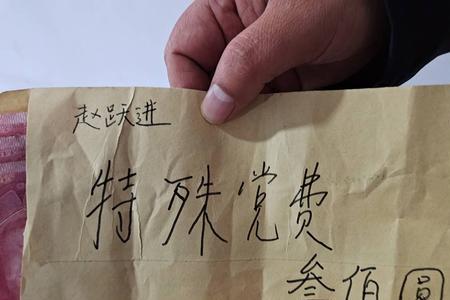 赵跃进
特殊党费
叁佰圓